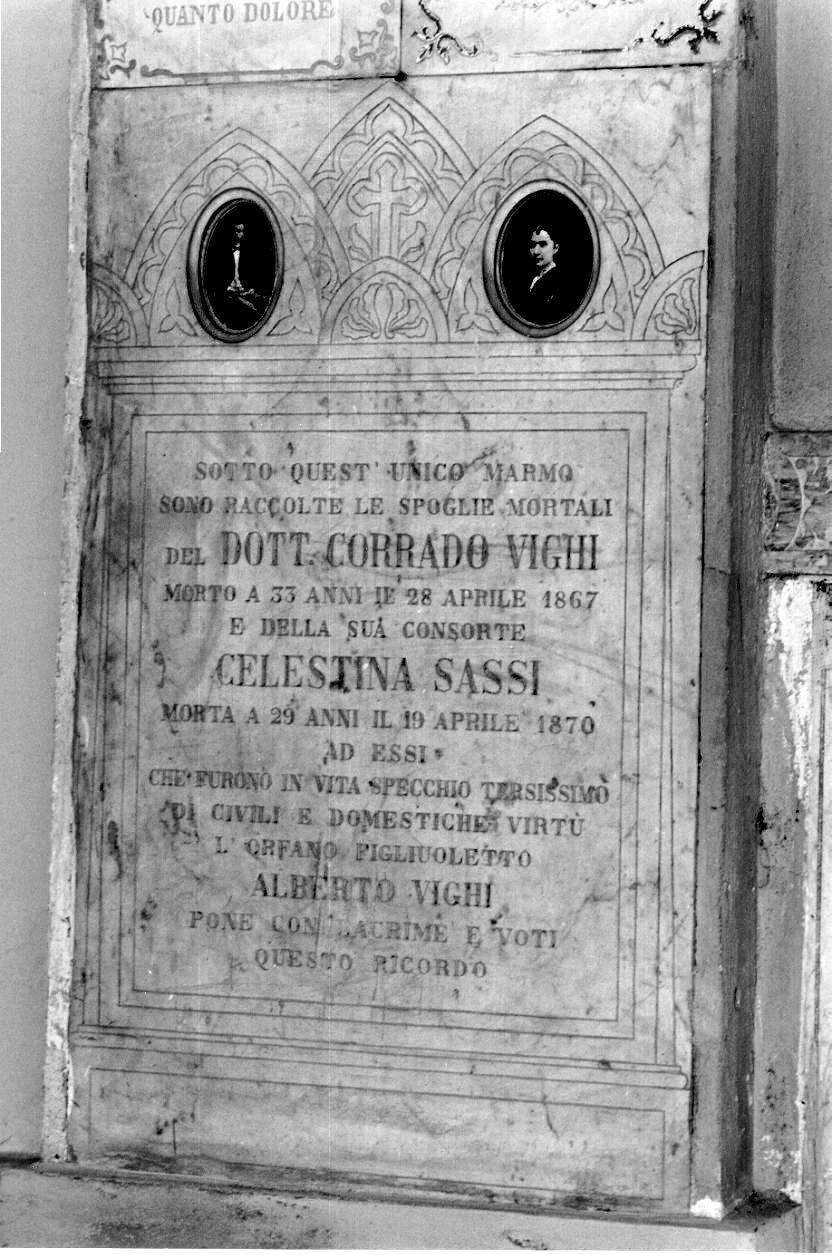 QUANTO DOLORE
SOTTO QUEST' UNICO MARMO
SONO RACCOLTE LE SPOGLIE MORTALI
DEL DOTT. CORRADO VIGHI
MORTO A 33 ANNI IL 28 APRILE 1867
E DELLA SUA CONSORTE
CELESTINA SASSI
MORTA A 29 ANNI IL 19 APRILE 1870
AD ESSI
CHE FURONO IN VITA SPECCHIO TERSISSIMO
DI CIVILI E DOMESTICHE VIRTÙ
L' ORFANO FIGLIUOLETTO
ALBERTO VIGHI
PONE CON LACRIME E VOTI
QUESTO RICORDO